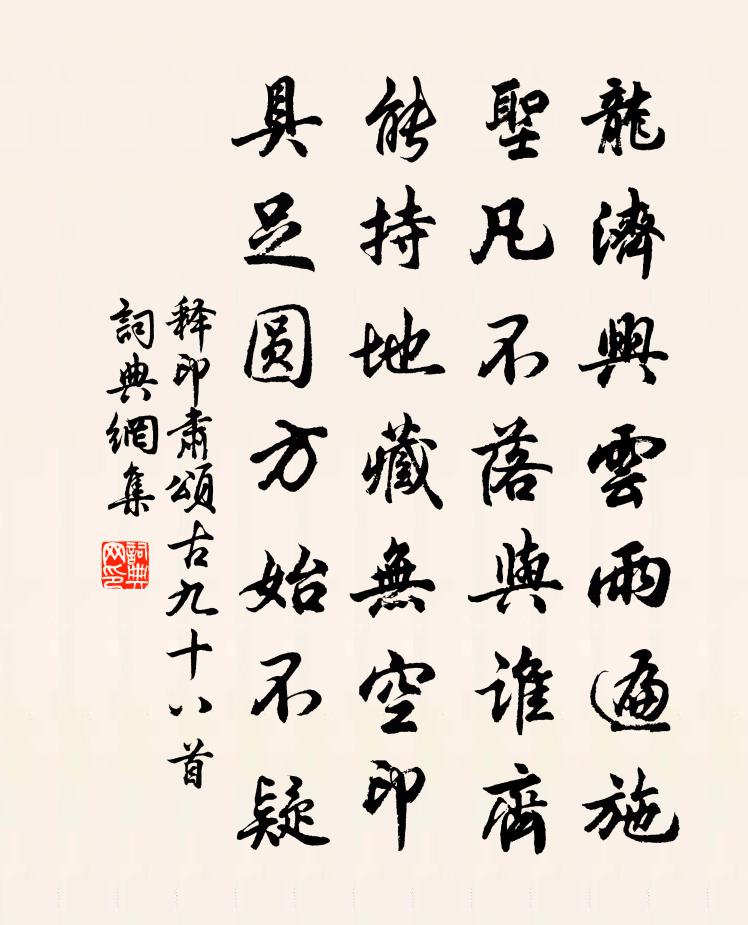 龍濟興雲雨遍施
聖凡不落與誰齊
能持地藏無空印
具足圆方始不疑
释印肅頌古九十八首
詞典網集
詞典网印